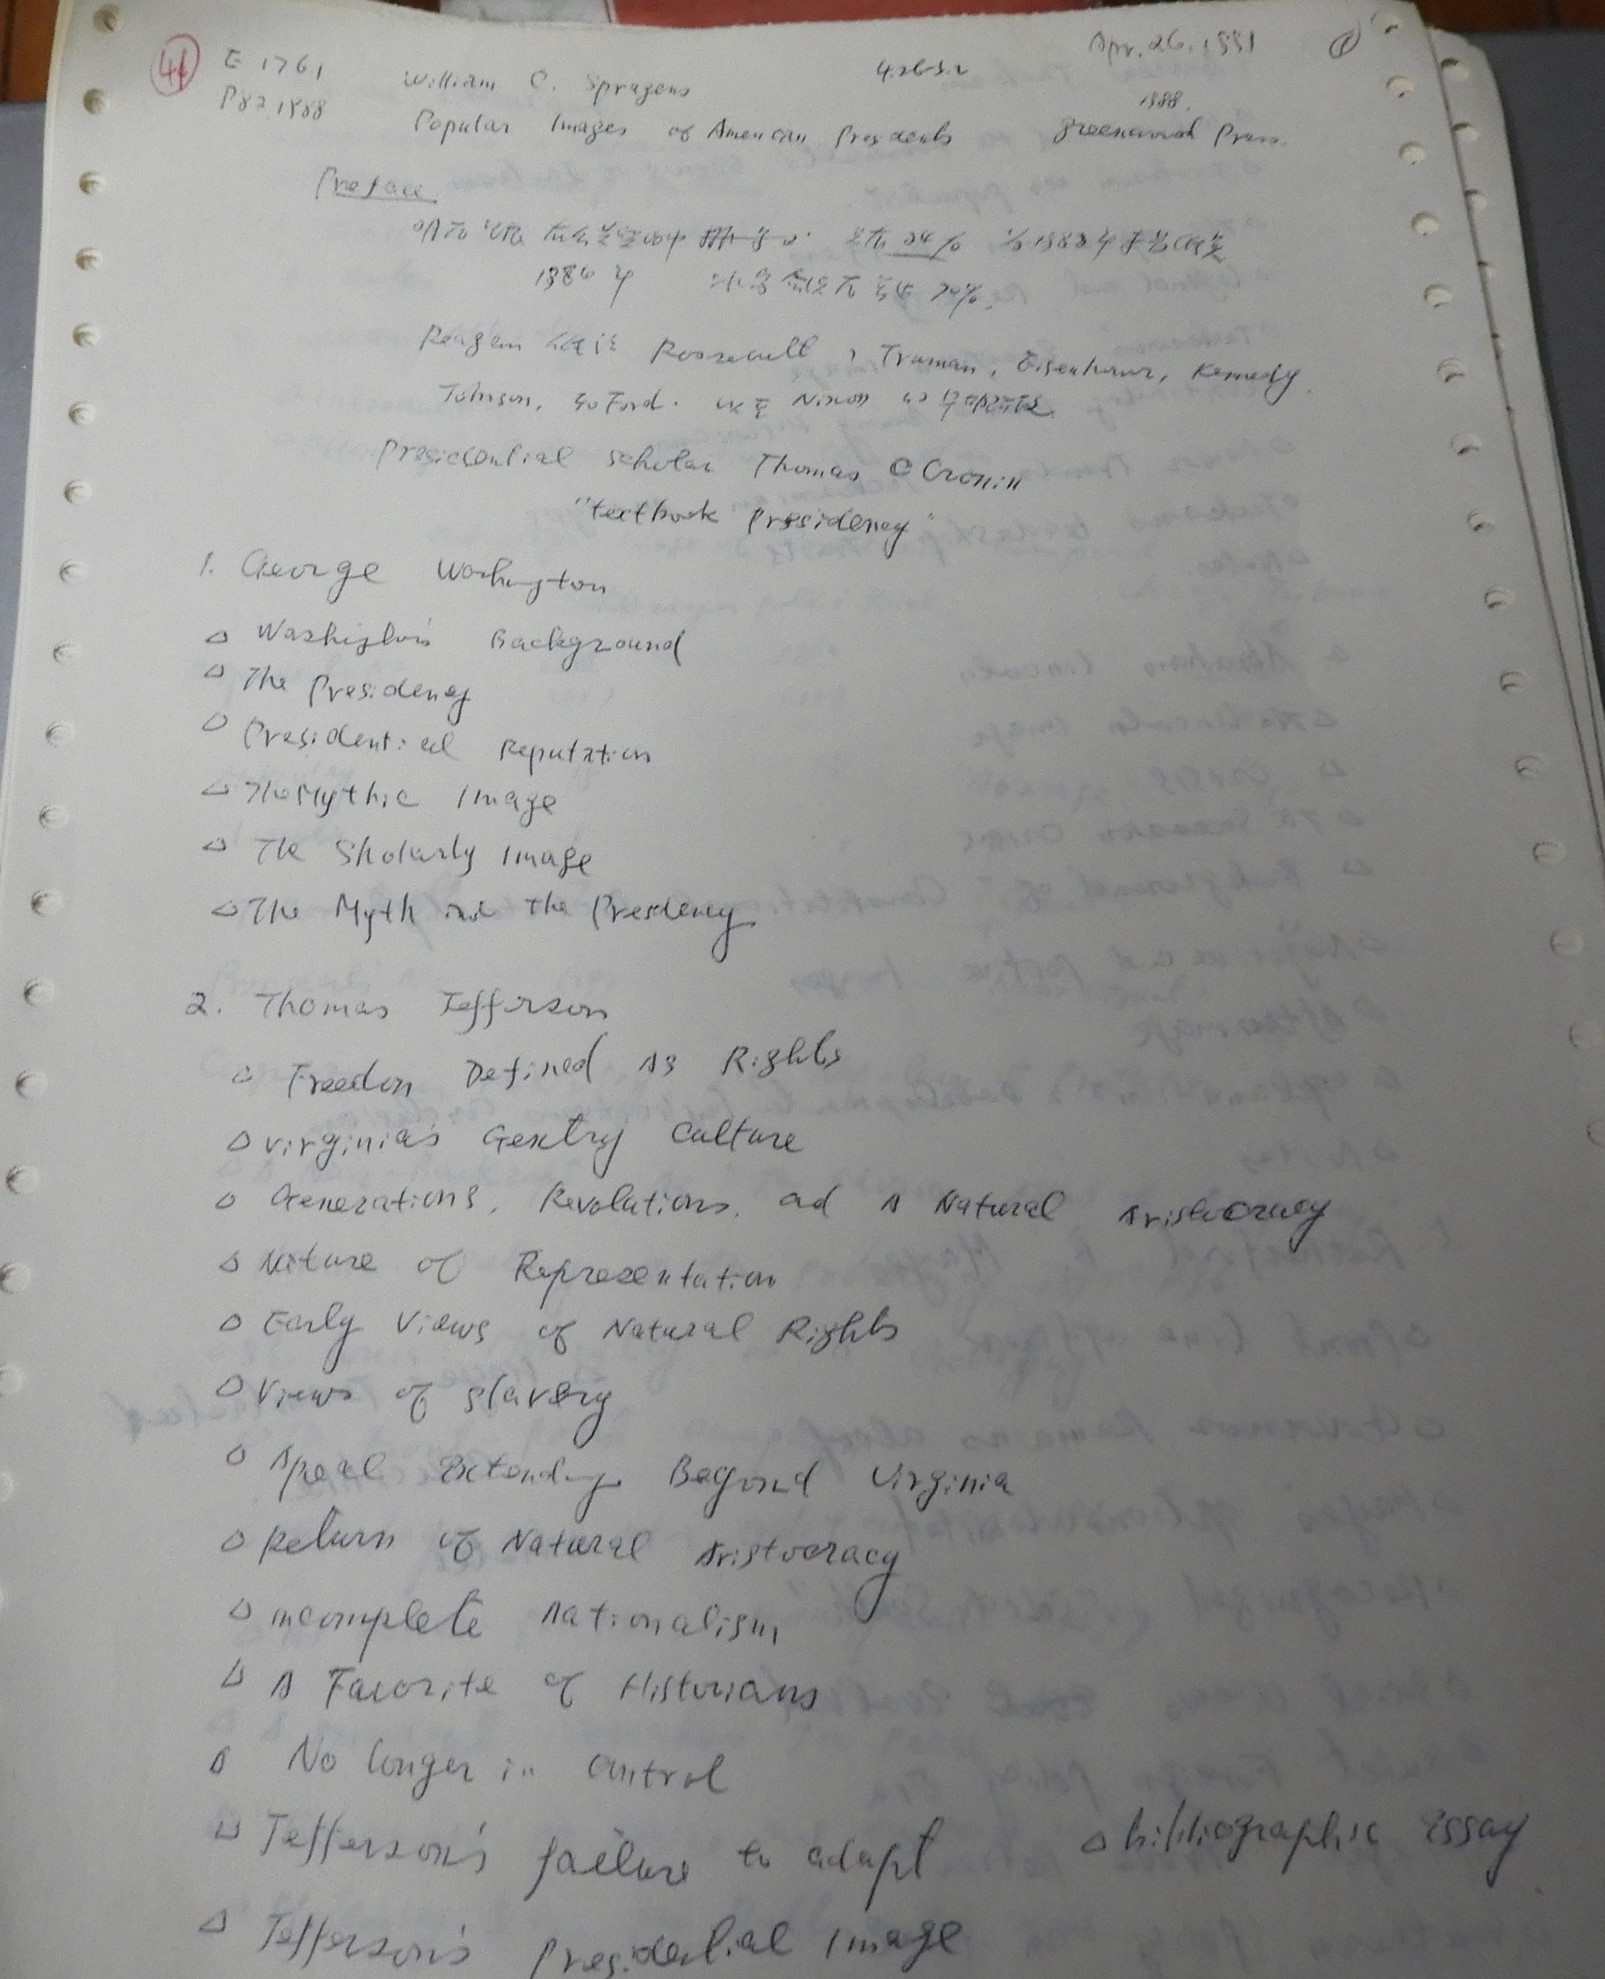 41 E 176.1 William C. Spragens 4.26-5.2 Apr. 26. 1991 1
P82.1988 Popular Images of American Presidents 1988. Greenwood Press.
Preface
24% 1983年
1986年 70%.
Reagan Roosevelt, Truman, Eisenhower, Kennedy
Johnson, Ford. Nixon
Presidential scholar Thomas E Cronin
"textbook Presidency"
1. George Washington
△ Washington's Background
△ The Presidency
△ Presidential Reputation
△ The Mythic Image
△ The Sholarly Image
△ The Myth and the Presdency
2. Thomas Jefferson
△ Freedom Defined As Rights
△ Virginia's Gentry Culture
△ Generations, Revolutions, ad A Natural Aristocracy
△ Nature of Representation
△ Early Views of Natural Rights
△ Views of slavery
△ Apeal Extending Beyond Virginia
△ Return of Natural Aristocracy
△ incomplete Nationalism
△ A Favorite of Historians
△ No longer in control
△ Jefferson's failure to adapt △ bibliographic Essay
△ Jefferson's Presidential Image